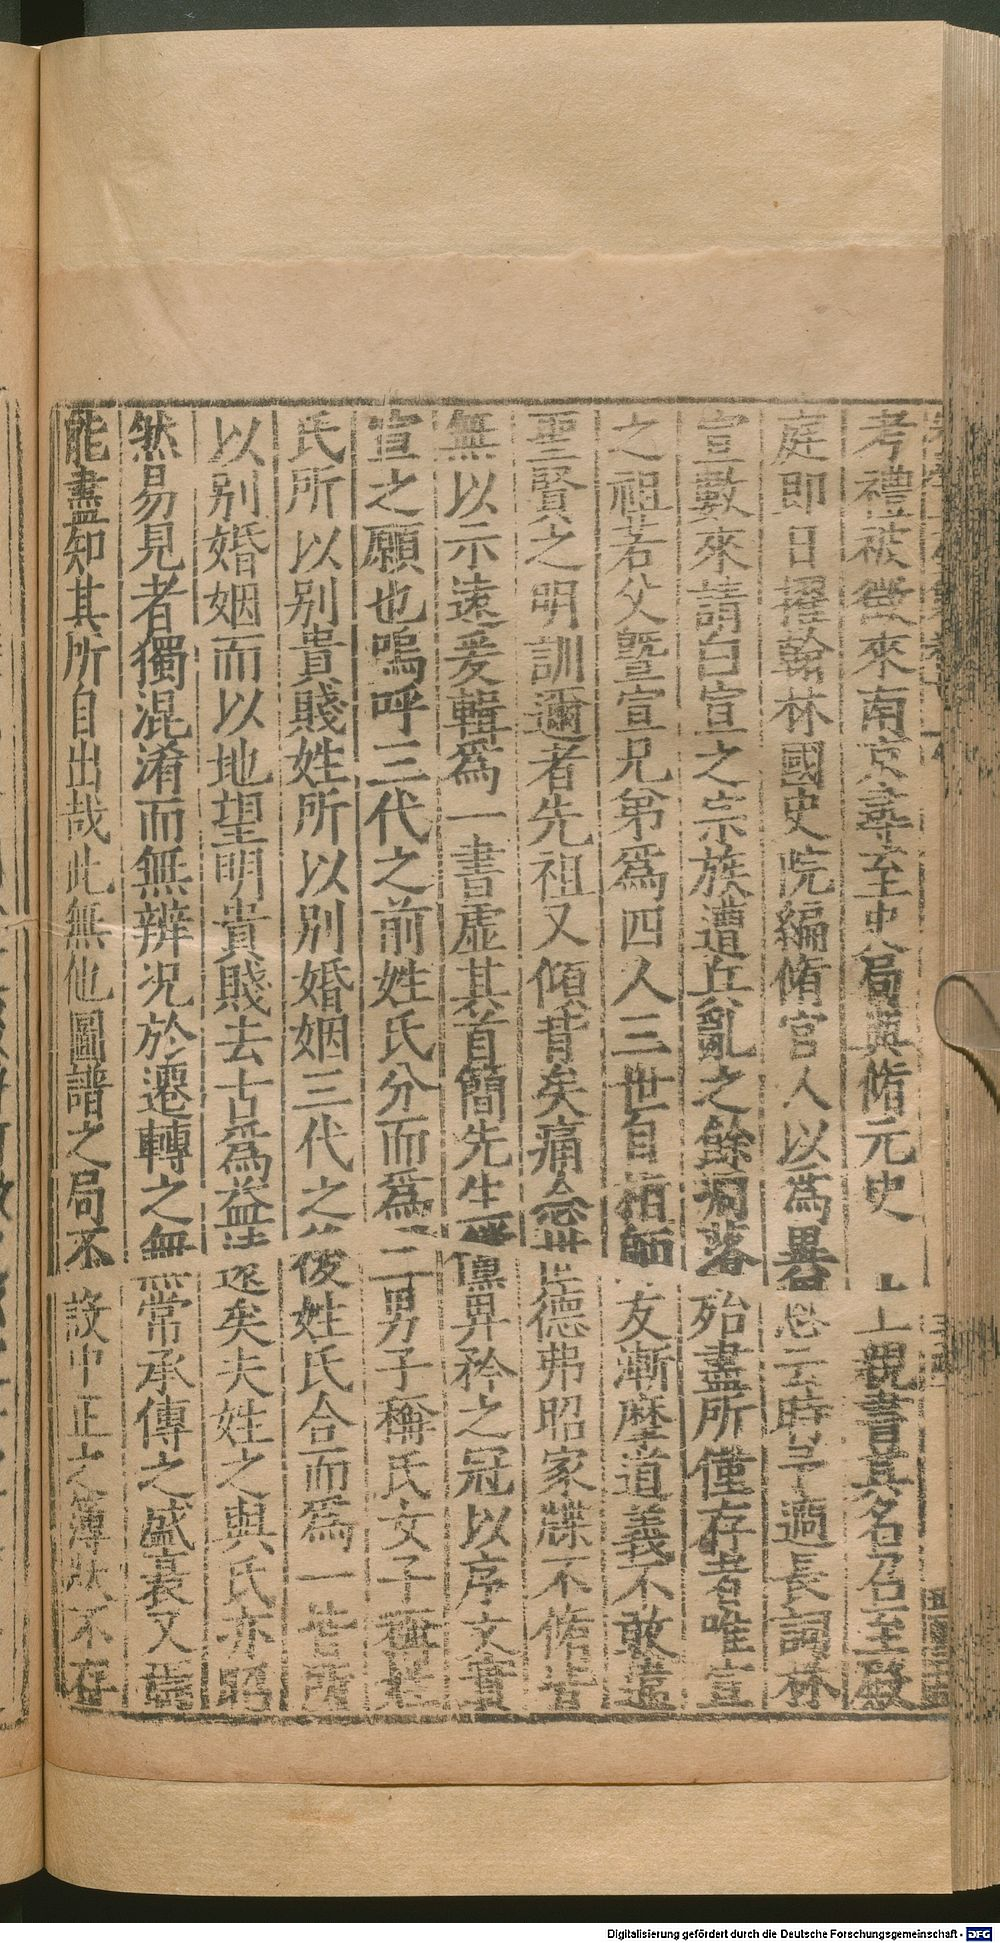 考禮被徵來南京尋至史局與脩元史上親書其名召至殿
庭即日擢翰林國史院編脩官人以爲異恩云時予適長詞林
宣數來請曰宣之宗族遭兵亂之餘凋落殆盡所僅存者唯宣
之祖若父曁宣兄弟爲四人三世自相師友漸磨道義不敢違
聖賢之明訓邇者先祖又傾背矣痛念世德弗昭家牒不脩
無以示遠爰輯爲一書虛其首簡先生儻畀矜之冠以序文實
宣之願也嗚呼三代之前姓氏分而爲二男子稱氏女子稱姓
氏所以别貴賤姓所以别婚姻三代之後姓氏合而爲一皆所
以别婚姻而以地望明貴賤去古爲益遠矣夫姓之與氏亦昭
然易見者獨混淆而無辨况於遷轉之無常承傳之盛衰又
能盡知其所自出哉此無他圖譜之局不設中正之簿狀不存
Digitalisierung gefördert durch die Deutsche Forschungsgemeinschaft - DFG